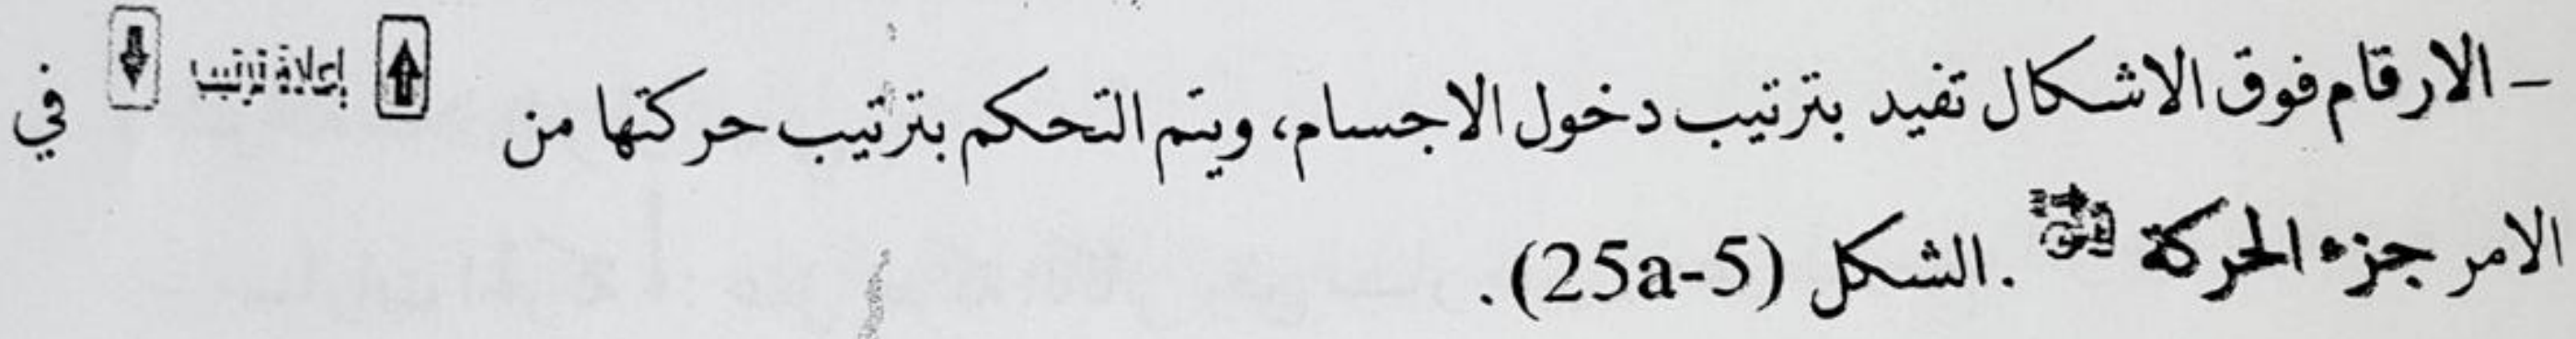 - الارقام فوق الاشكال تفيد بترتيب دخول الاجسام، ويتم التحكم بترتيب حركتها من إعادة ترتيب في
الامر جزء الحركة . الشكل (25a-5).